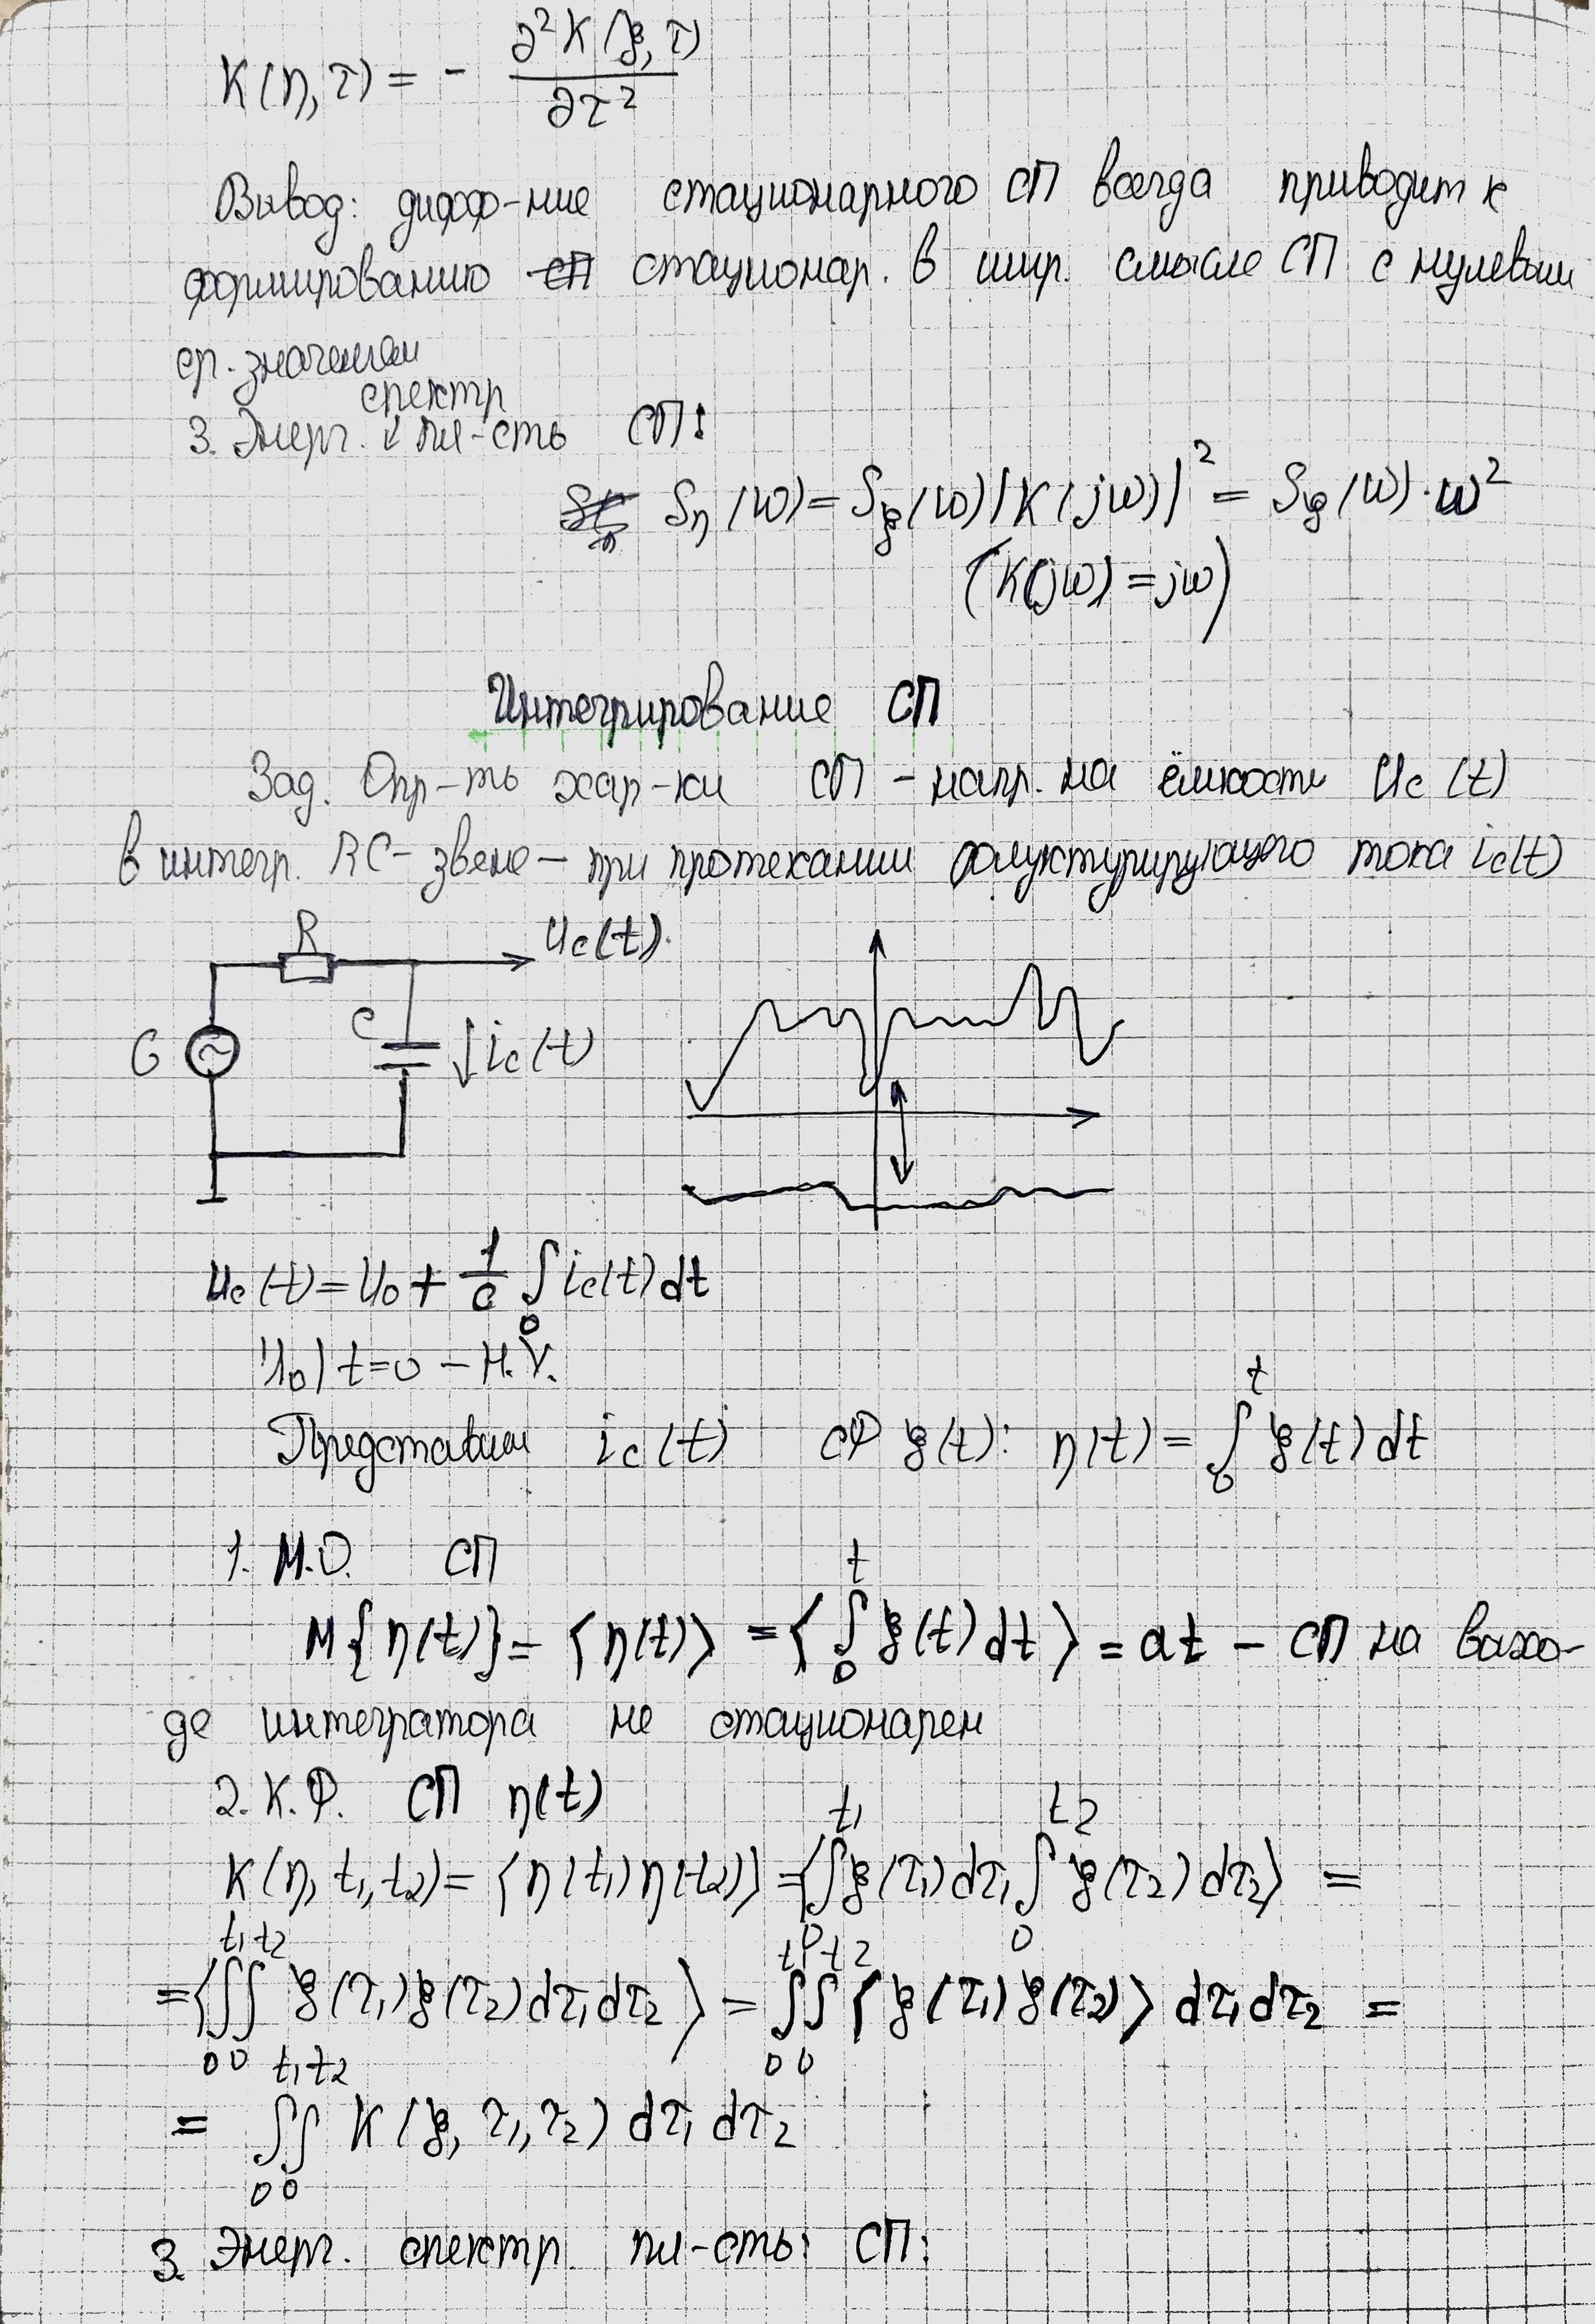 K(η,τ) = - ∂²K(ξ,τ) / ∂τ²
Вывод: дифф-ние стационарного СП всегда приводит к
формированию стационар. в шир. смысле СП с нулевым
ср. значением
спектр
3. Энерг. ↓ пл-сть СП:
Sη(ω) = Sξ(ω)|K(jω)|² = Sξ(ω)·ω²
(K(jω) = jω)
Интегрирование СП
Зад. Опр-ть хар-ки СП – напр. на ёмкости Uc(t)
в интегр. RC-звене – при протекании флуктурирующего тока ic(t)
R
Uc(t)
G
C
↓ic(t)
Uc(t) = U₀ + 1/C ∫₀ ic(t)dt
U₀|t=0 – Н.У.
Представим ic(t) СФ ξ(t): η(t) = ∫₀ᵗ ξ(t)dt
1. М.О. СП
M{η(t)} = ⟨η(t)⟩ = ⟨∫₀ᵗ ξ(t)dt⟩ = at – СП на выхо-
де интегратора не стационарен
2. К.Ф. СП η(t)
K(η, t₁, t₂) = ⟨η(t₁)η(t₂)⟩ = ⟨∫₀^t₁ ξ(τ₁)dτ₁ ∫₀^t₂ ξ(τ₂)dτ₂⟩ =
= ⟨∫₀^t₁ ∫₀^t₂ ξ(τ₁)ξ(τ₂)dτ₁dτ₂⟩ = ∫₀^t₁ ∫₀^t₂ ⟨ξ(τ₁)ξ(τ₂)⟩ dτ₁dτ₂ =
= ∫₀^t₁ ∫₀^t₂ K(ξ, τ₁, τ₂) dτ₁ dτ₂
3. Энерг. спектр. пл-сть СП: